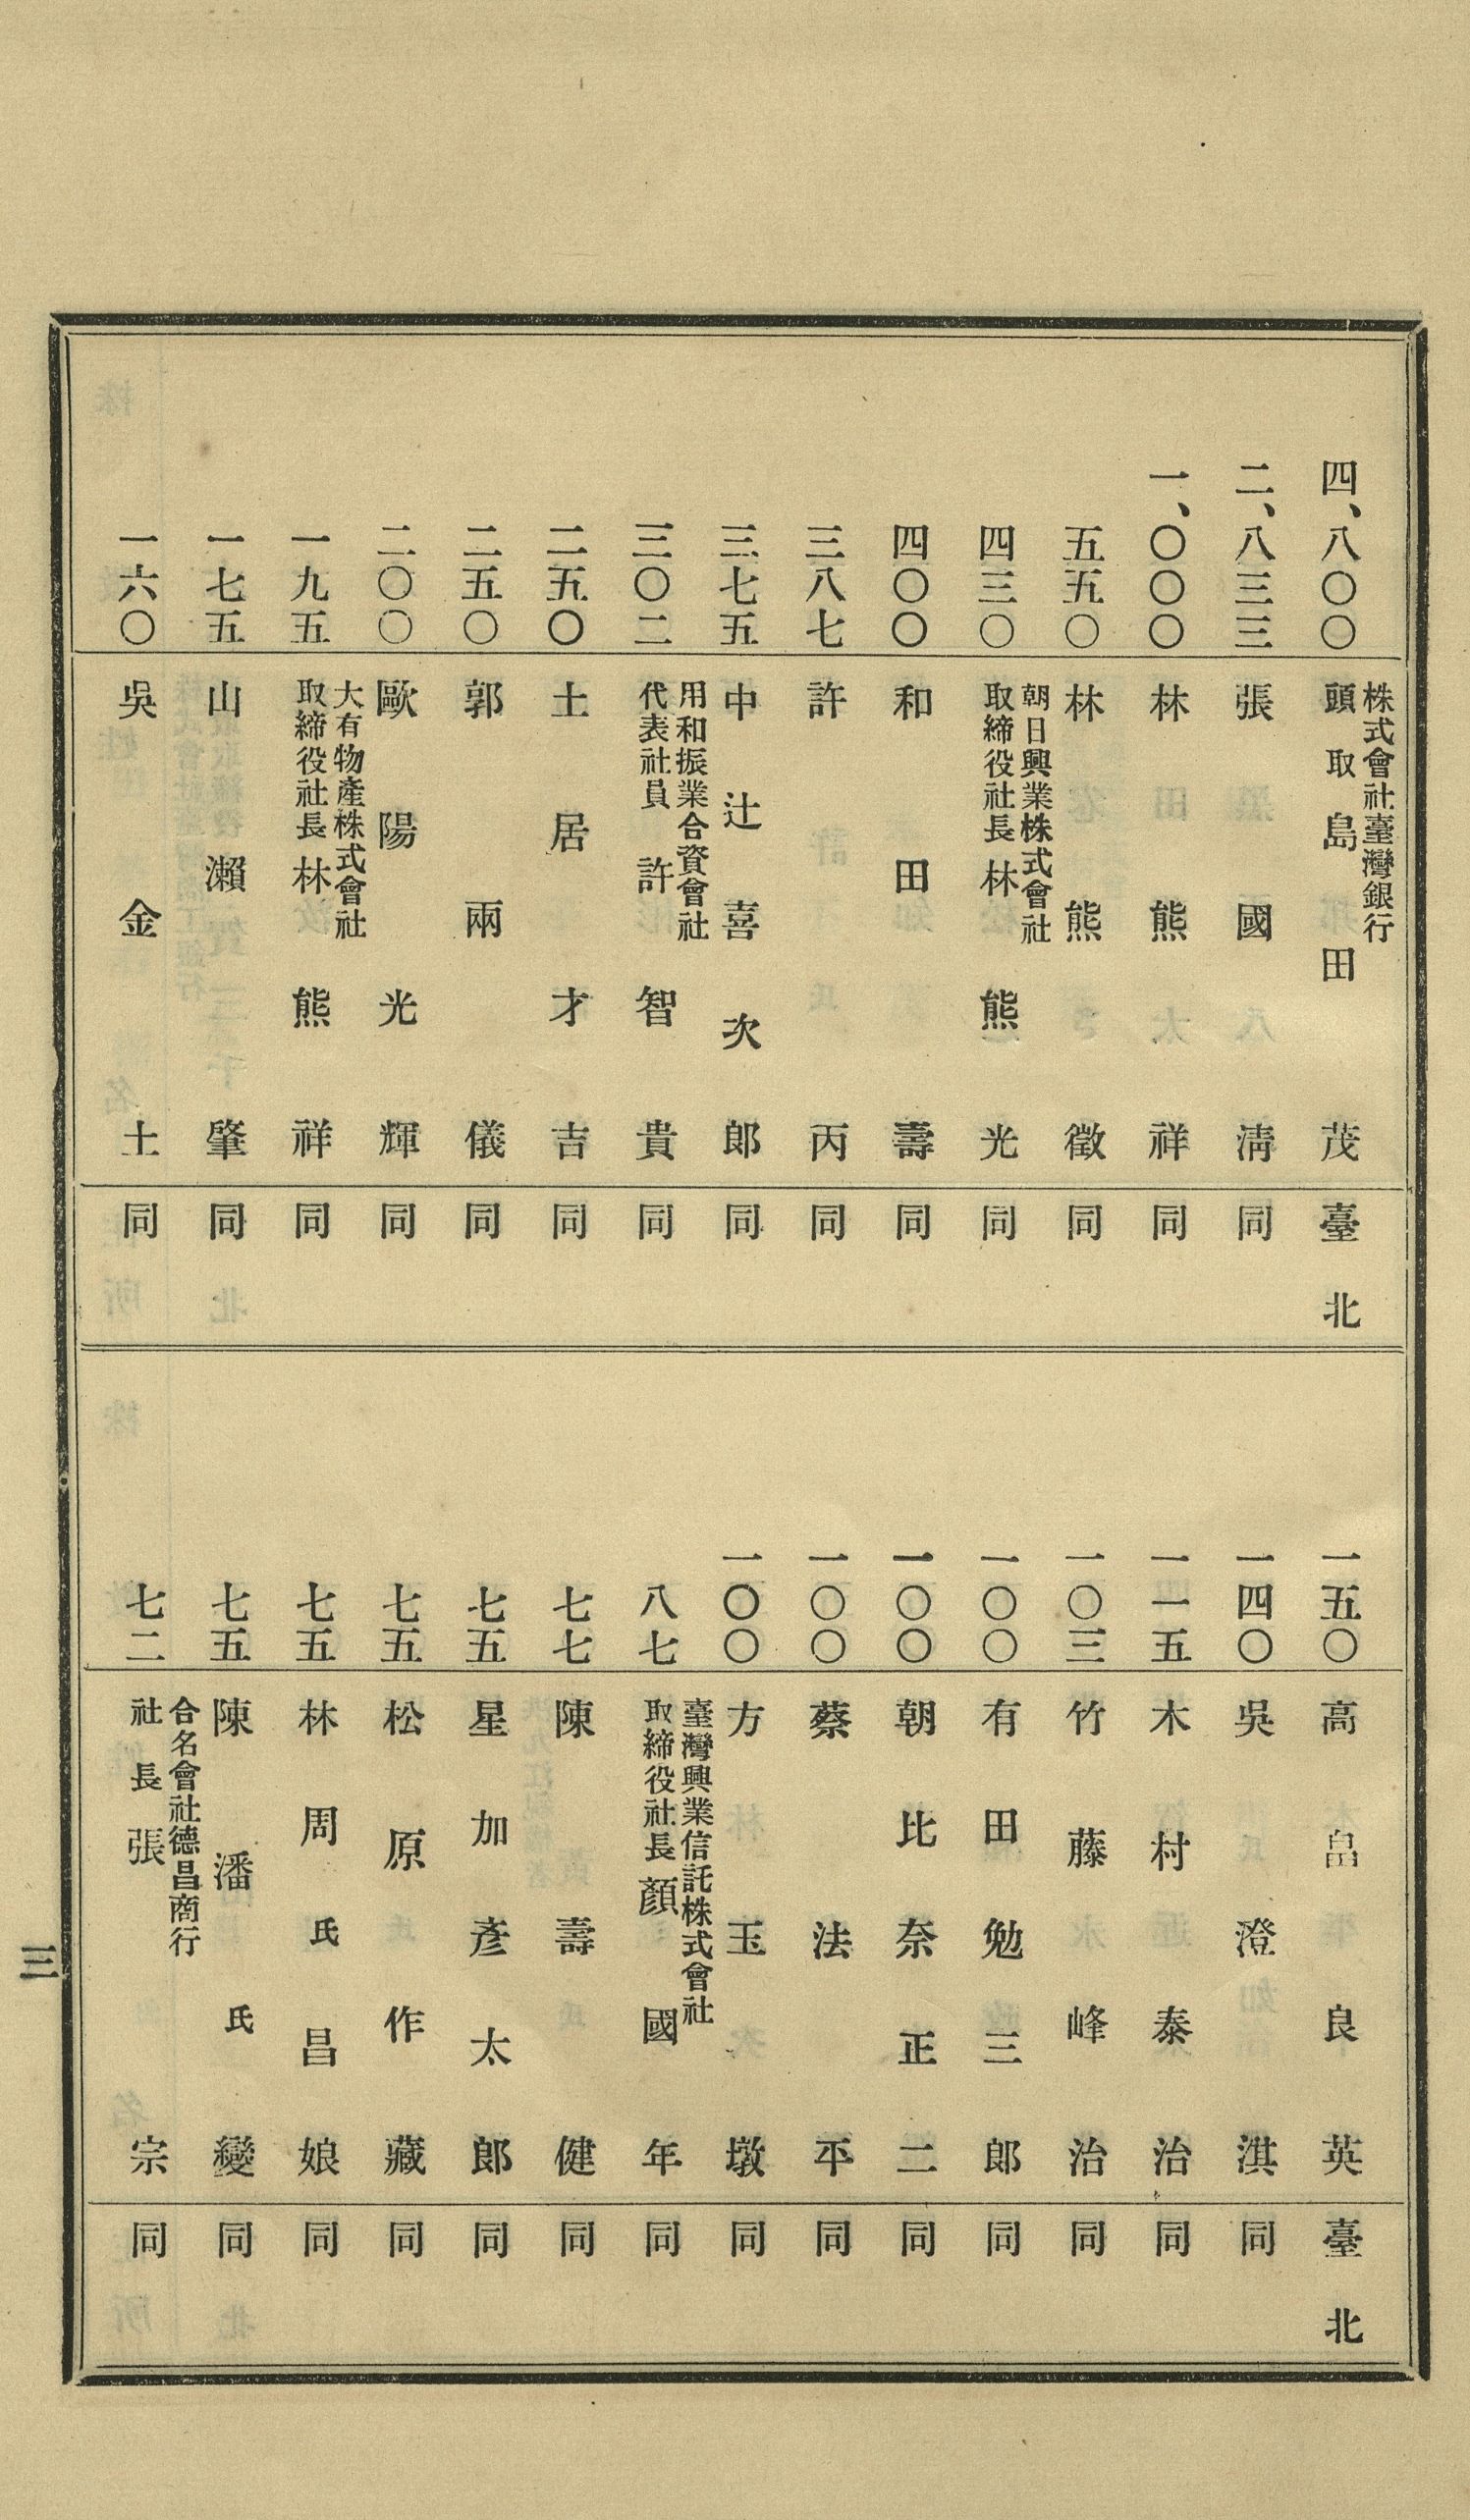 四、八〇〇 株式會社臺灣銀行 頭取 島田茂 臺北
二、八三三 張國淸 同
一、〇〇〇 林熊祥 同
五五〇 林熊徵 同
四三〇 朝日興業株式會社 取締役社長 林熊光 同
四〇〇 和田壽 同
三八七 許丙 同
三七五 中辻喜次郎 同
三〇二 用和振業合資會社 代表社員 許智貴 同
二五〇 土居才吉 同
二五〇 郭兩儀 同
二〇〇 歐陽光輝 同
一九五 大有物產株式會社 取締役社長 林熊祥 同
一七五 山瀨肇 同
一六〇 吳金土 同
一五〇 高畠良英 臺北
一四〇 吳澄淇 同
一一五 木村泰治 同
一〇三 竹藤峰治 同
一〇〇 有田勉三郎 同
一〇〇 朝比奈正二 同
一〇〇 蔡法平 同
一〇〇 方玉墩 同
八七 臺灣興業信託株式會社 取締役社長 顏國年 同
七七 陳壽健 同
七五 星加彥太郎 同
七五 松原作藏 同
七五 林周氏昌娘 同
七五 陳潘氏變 同
七二 合名會社德昌商行 社長 張宗 同
三